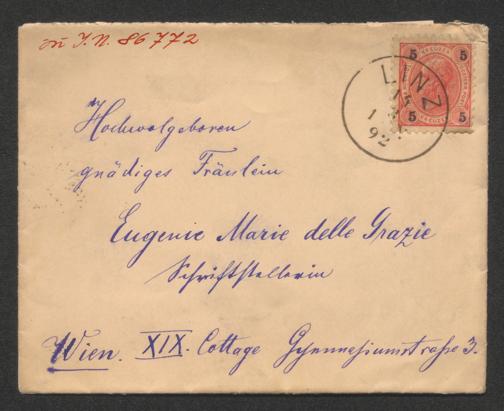 zu I.N. 86772
5 5
5 5
LINZ
15
1
92
Hochwolgeboren
gnädiges Fräulein
Eugenie Marie delle Grazie
Schriftstellerin
Wien. XIX. Cottage Gymnasiumstraße 3.